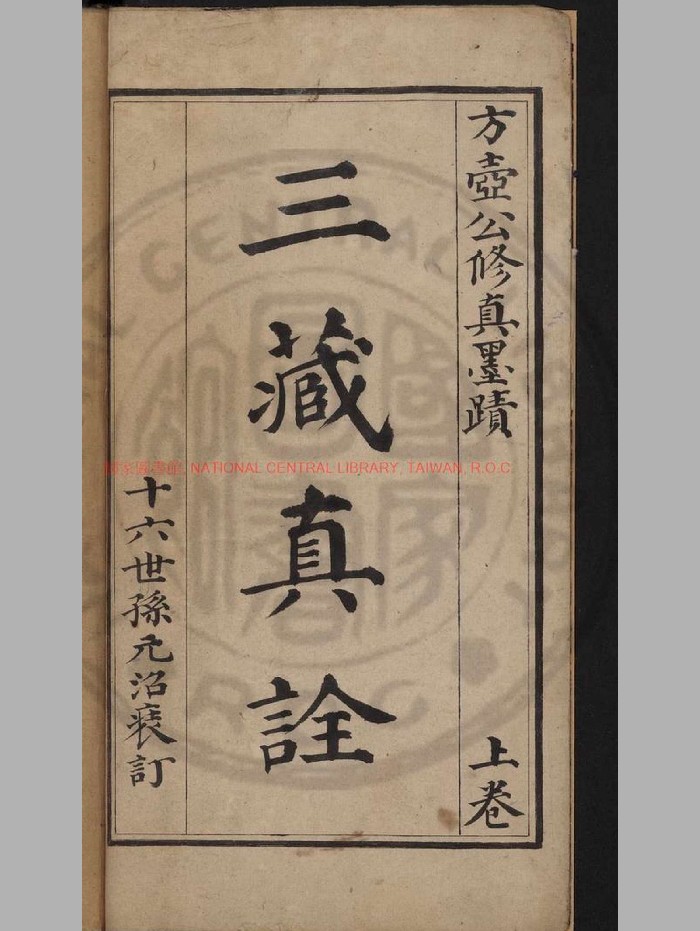 方壺公修真墨蹟 上卷
三藏真詮
十六世孫元沼裝訂
國家圖書館, NATIONAL CENTRAL LIBRARY, TAIWAN, R.O.C.